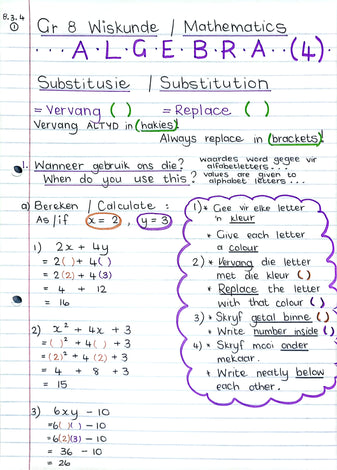 8.3.4
①
Gr 8 Wiskunde / Mathematics
...A.L.G.E.B.R.A..(4).
Substitusie / Substitution
= Vervang ( ) = Replace ( )
Vervang ALTYD in (hakies)!
Always replace in (brackets)!
1. Wanneer gebruik ons die? waardes word gegee vir
alfabetletters...
When do you use this? values are given to
alphabet letters...
a) Bereken / Calculate :
As/if x = 2, y = 3
1) 2x + 4y
= 2( ) + 4( )
= 2(2) + 4(3)
= 4 + 12
= 16
2) x² + 4x + 3
= ( )² + 4( ) + 3
= (2)² + 4(2) + 3
= 4 + 8 + 3
= 15
3) 6xy - 10
= 6( )( ) - 10
= 6(2)(3) - 10
= 36 - 10
= 26
1) * Gee vir elke letter
'n kleur
* Give each letter
a colour
2) * Vervang die letter
met die kleur ( )
* Replace the letter
with that colour ( )
3) * Skryf getal binne ( )
* Write number inside ( )
4) * Skryf mooi onder
mekaar.
* Write neatly below
each other.